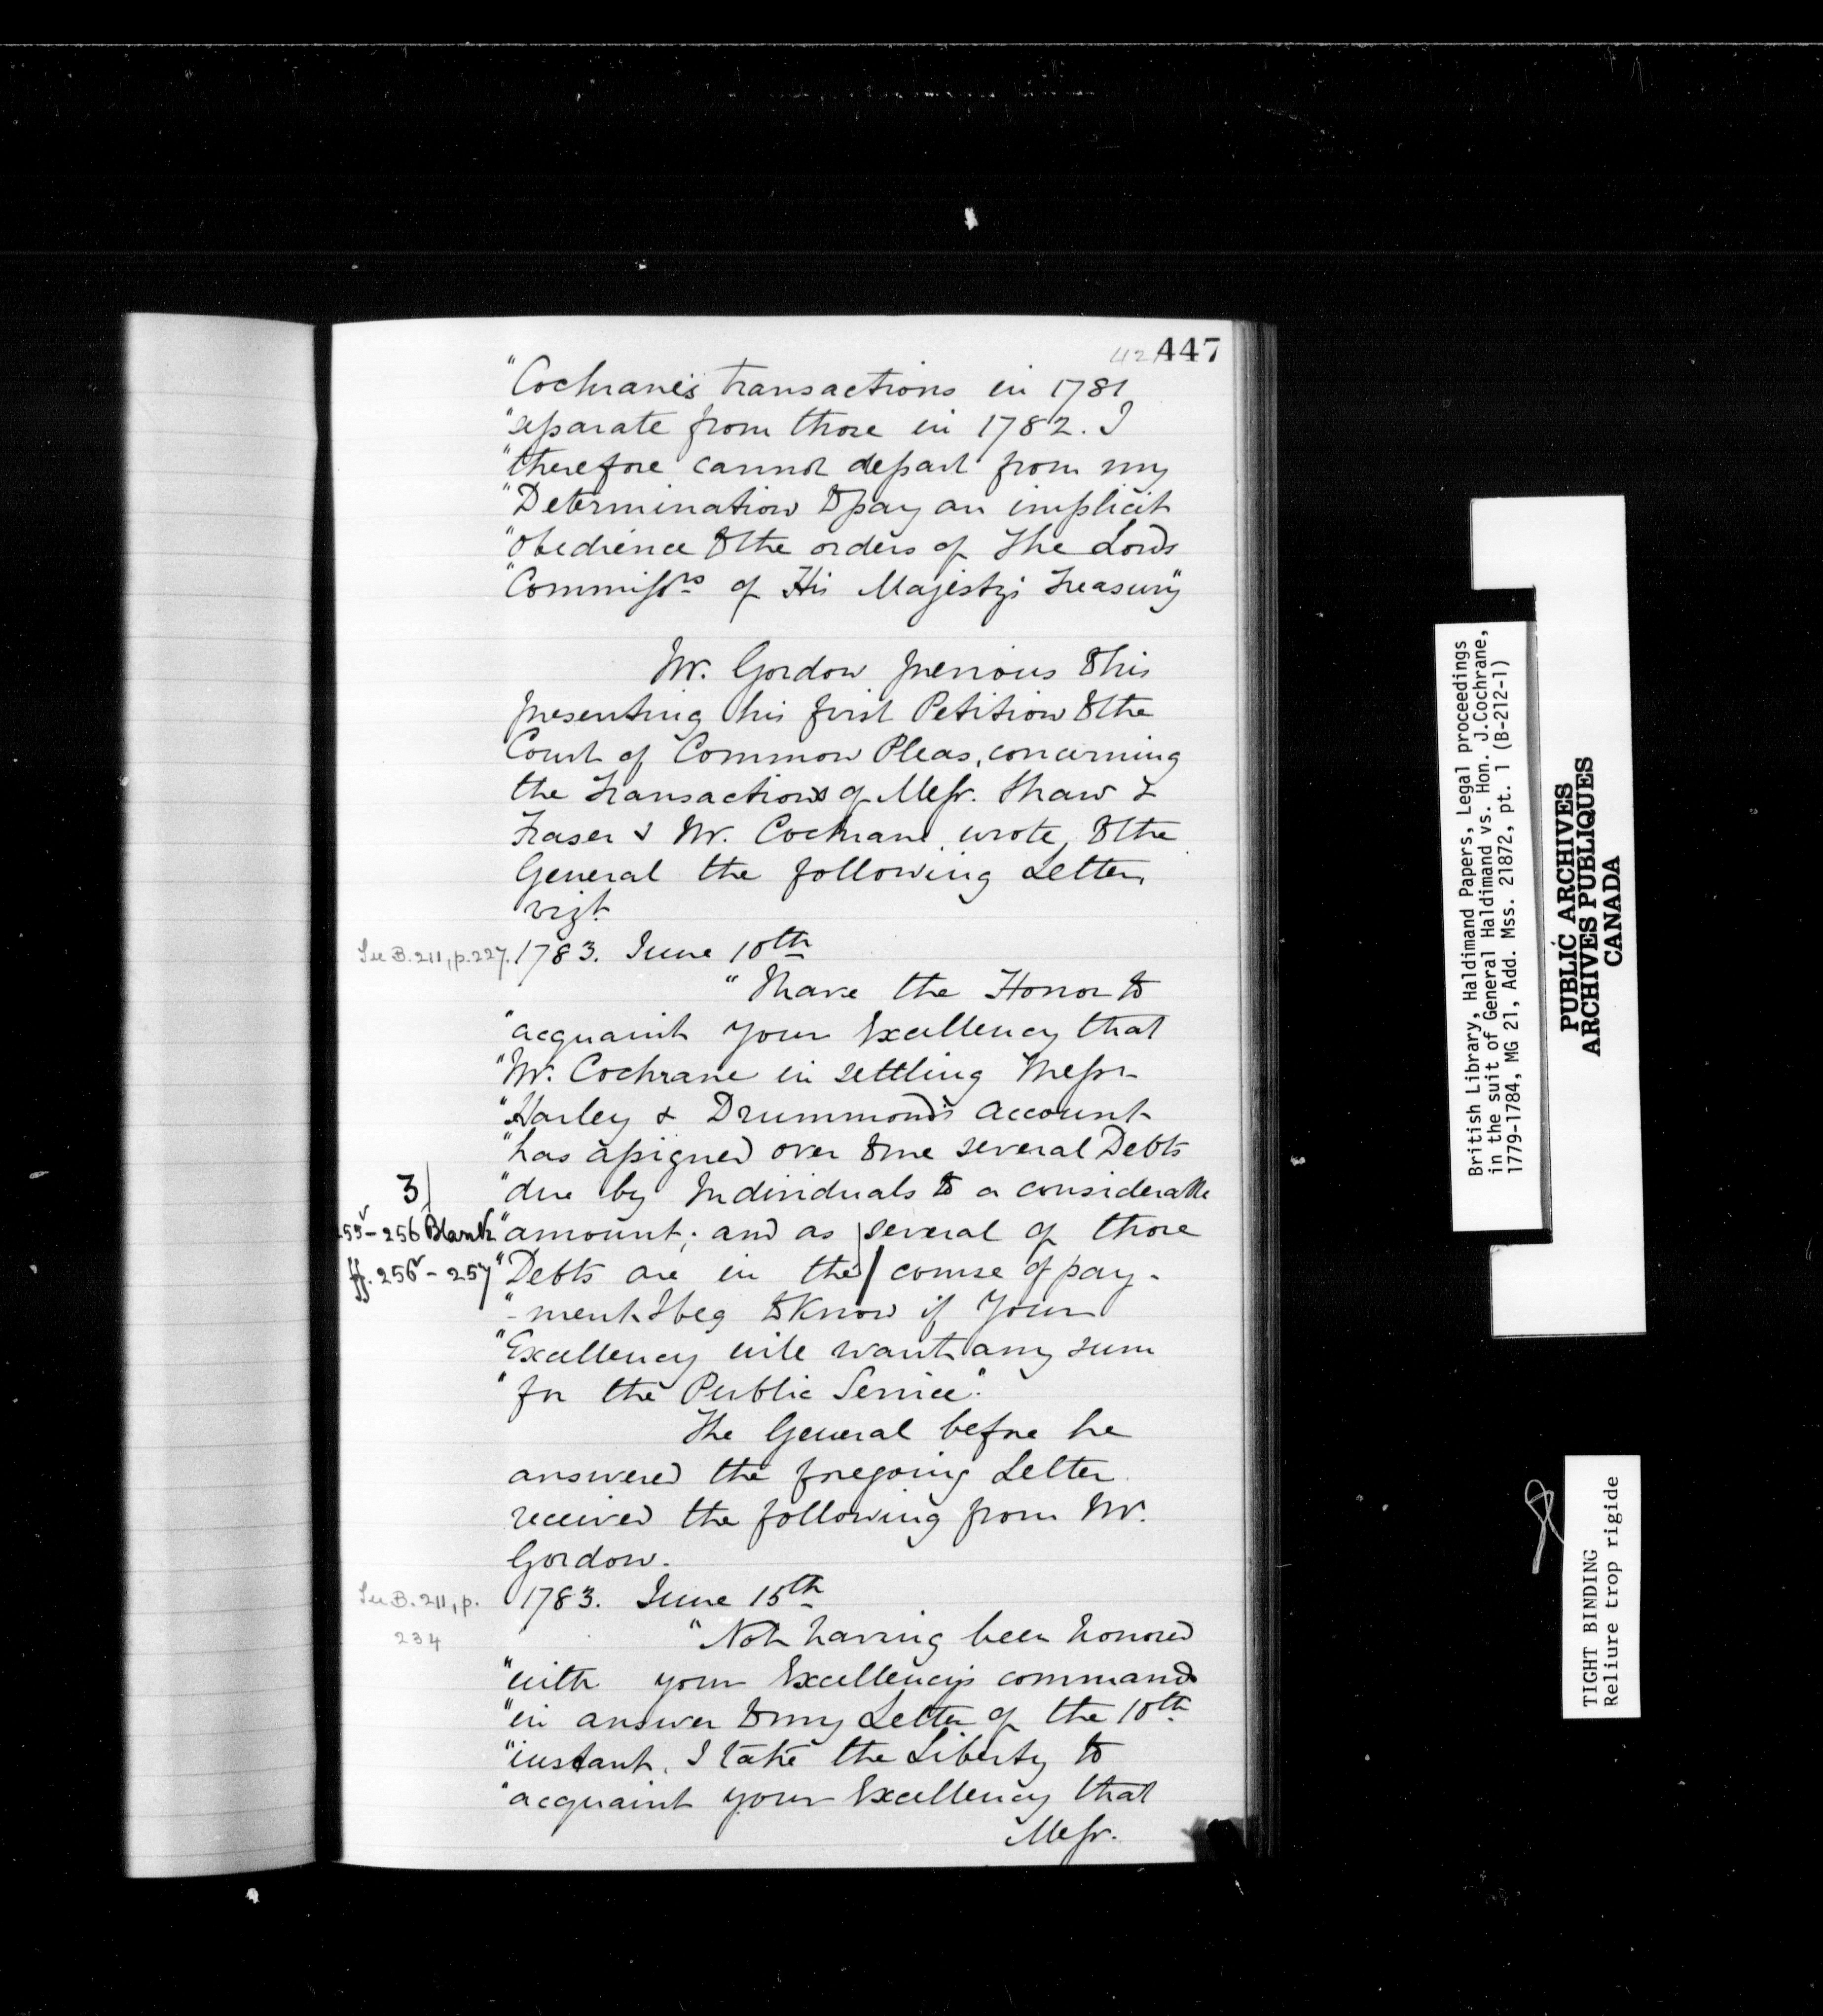 447
"Cochrane's transactions in 1781
"separate from those in 1782. I
"therefore cannot depart from my
"Determination to pay an implicit
"obedience to the orders of the Lords
"Commissrs of His Majesty's Treasury"
Mr. Gordon previous to his
presenting his first Petition to the
Court of Common Pleas, concerning
the Transactions of Messr. Shaw &
Fraser & Mr. Cochrane, wrote to the
General the following Letter,
vizt
See B. 211, p. 227. 1783. June 10th
"I have the Honor to
"acquaint your Excellency that
"Mr. Cochrane in settling Messr
"Harley & Drummond's account
"has assigned over to me several Debts
3
"due by Individuals to a considerable
255v - 256 Blank "amount; and as several of those
ff. 256v - 257 "Debts are in the course of pay-
"-ment I beg to know if Your
"Excellency will want any sum
"for the Public Service".
The General before he
answered the foregoing Letter
received the following from Mr.
Gordon.
See B. 211, p. 234
1783. June 15th
"Not having been honored
"with your Excellency's commands
"in answer to my Letter of the 10th
"instant, I take the Liberty to
"acquaint your Excellency that
Messr.
British Library, Haldimand Papers, Legal proceedings
in the suit of General Haldimand vs. Hon. J.Cochrane,
1779-1784, MG 21, Add. Mss. 21872, pt. 1 (B-212-1)
PUBLIC ARCHIVES
ARCHIVES PUBLIQUES
CANADA
TIGHT BINDING
Reliure trop rigide